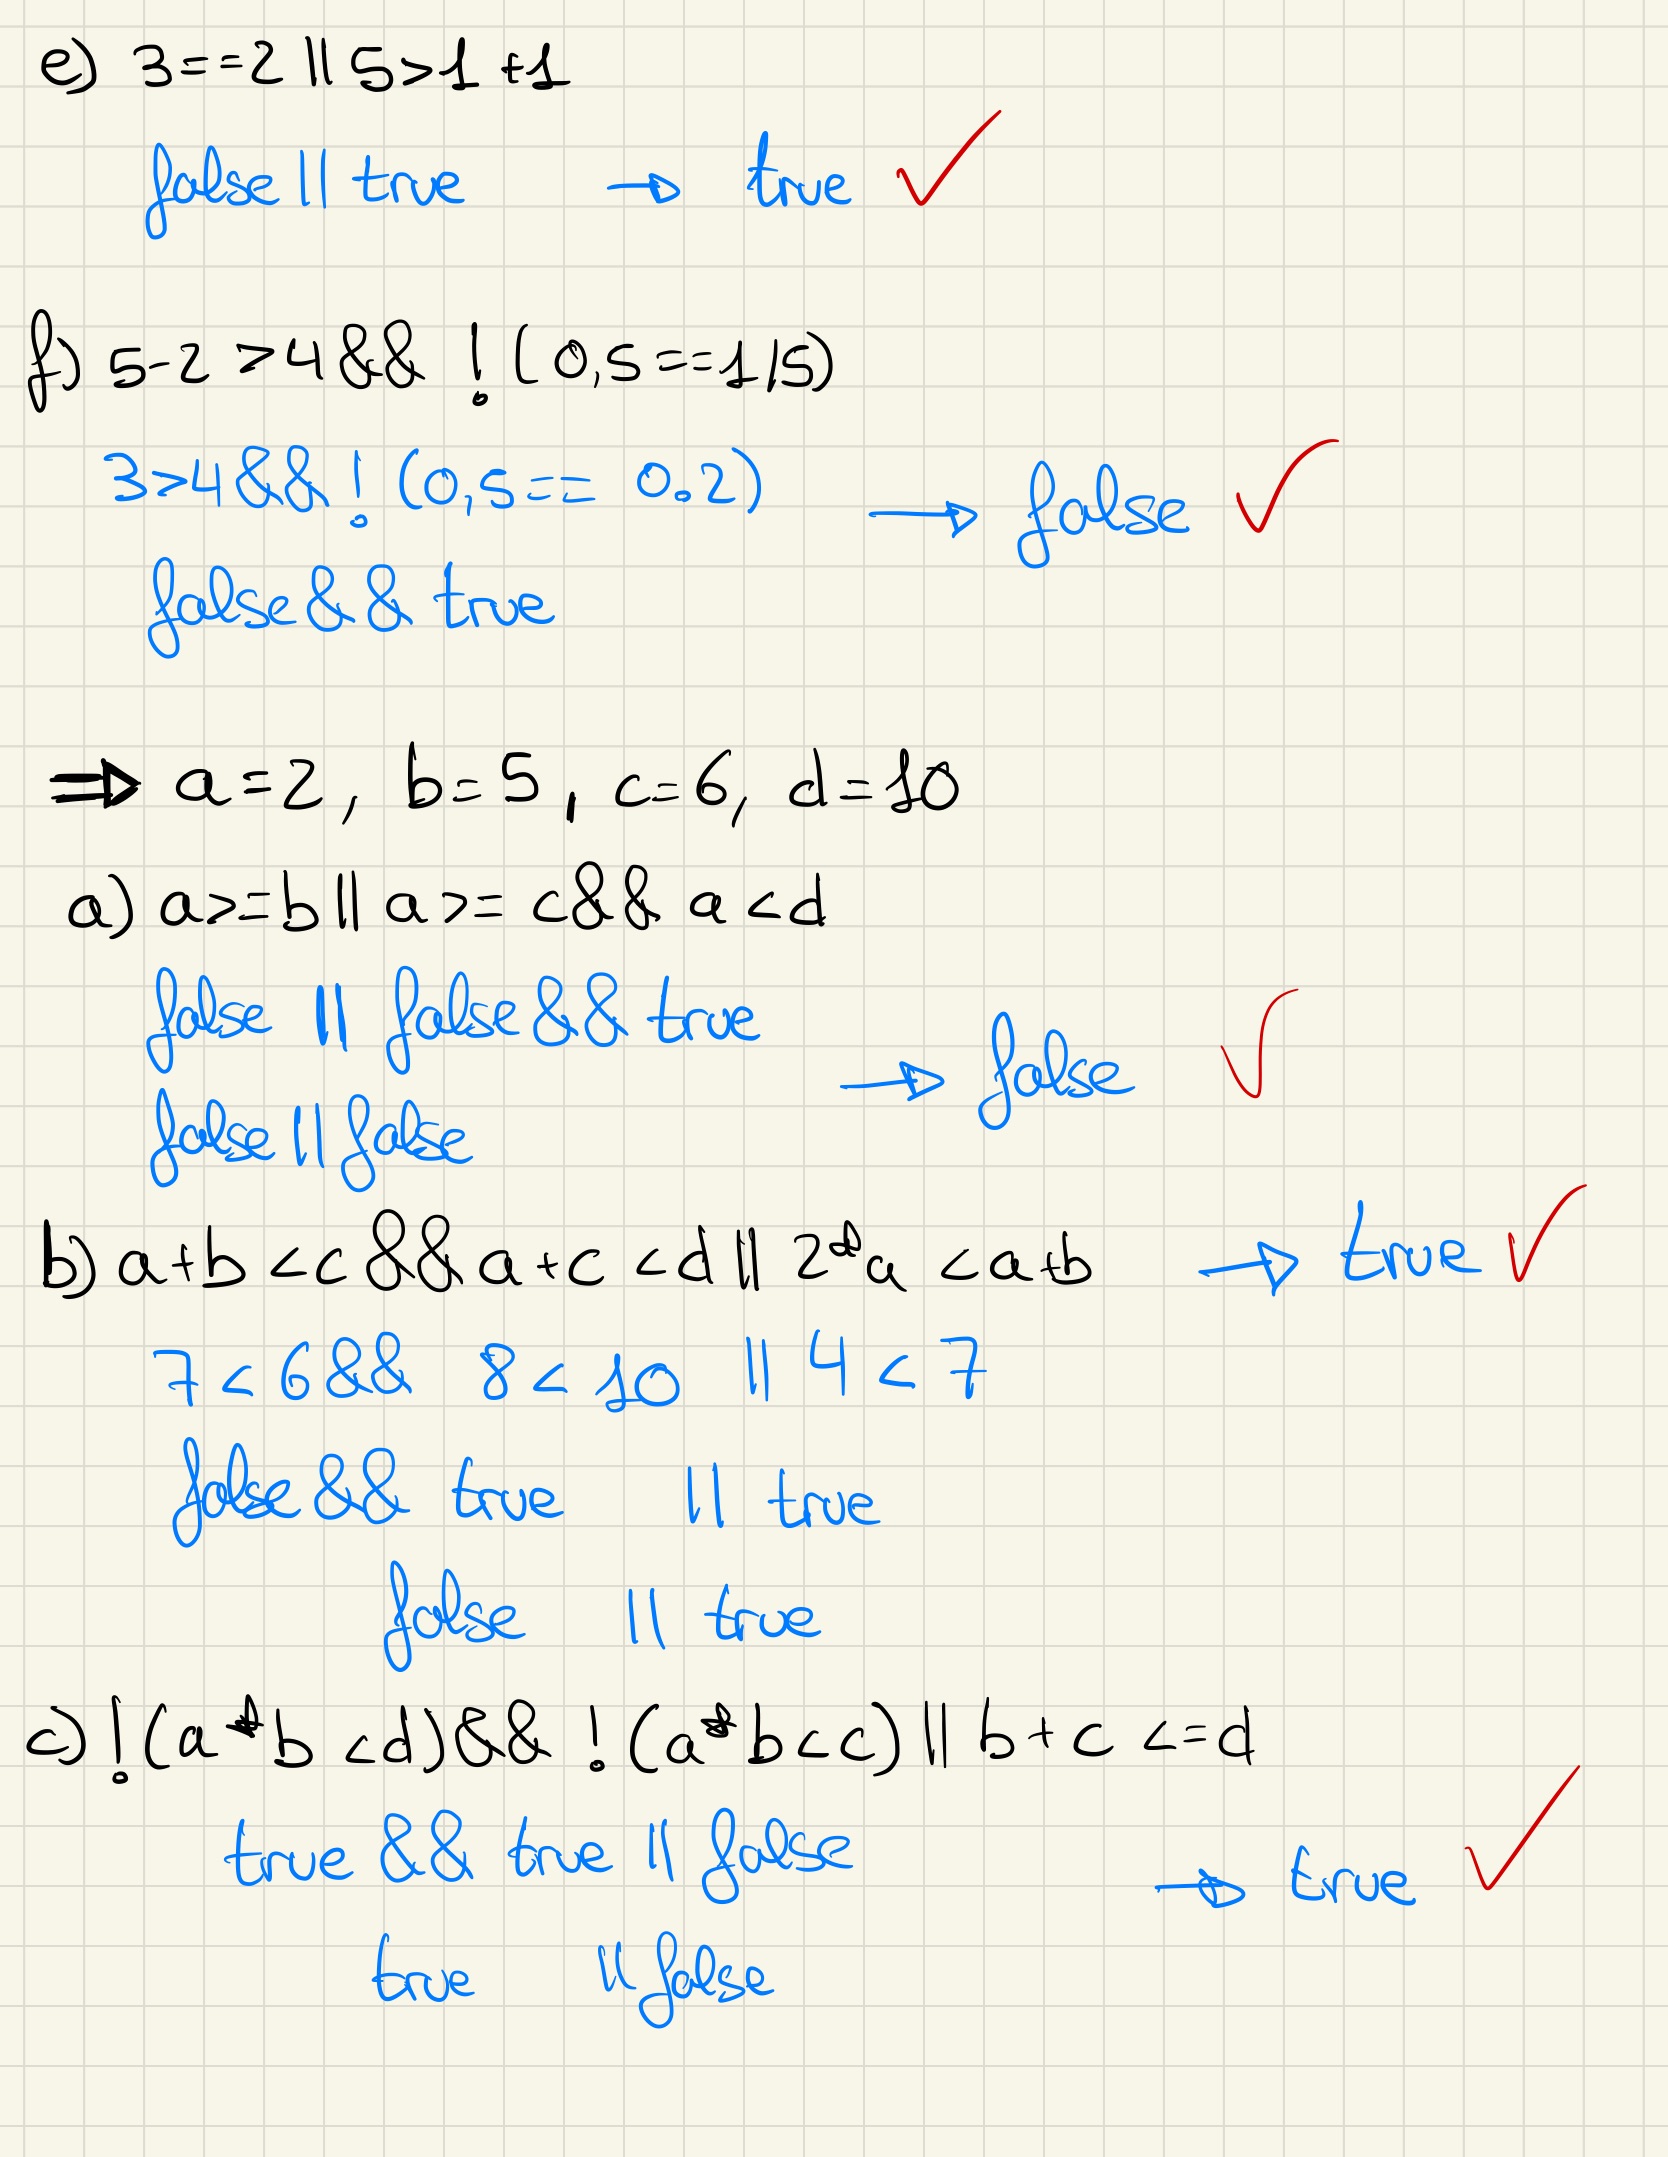 e) 3==2 || 5>1+1
false || true → true ✓
f) 5-2 >4 && !(0,5==1/5)
3>4 && !(0,5== 0.2) → false ✓
false && true
⇒ a=2, b=5, c=6, d=10
a) a>=b || a>=c && a<d
false || false && true → false ✓
false || false
b) a+b <c && a+c <d || 2*a <a+b → true ✓
7<6 && 8<10 || 4<7
false && true || true
false || true
c) !(a*b <d) && !(a*b<c) || b+c <=d
true && true || false → true ✓
true || false